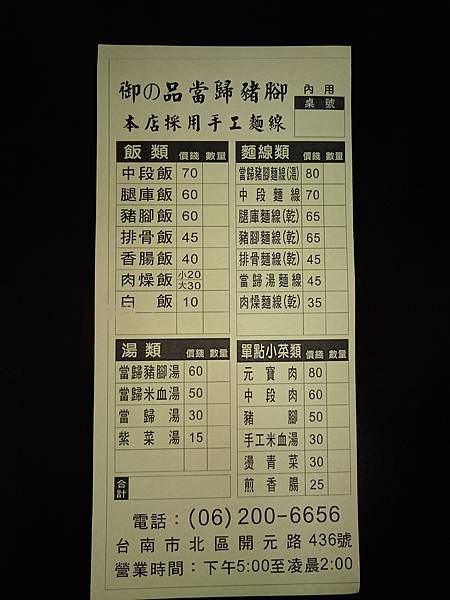 御の品當歸豬腳
內用
桌號
本店採用手工麵線
飯類 價錢 數量
中段飯 70
腿庫飯 60
豬腳飯 60
排骨飯 45
香腸飯 40
肉燥飯 小20 大30
白飯 10
麵線類 價錢 數量
當歸豬腳麵線(湯) 80
中段麵線 70
腿庫麵線(乾) 65
豬腳麵線(乾) 65
排骨麵線(乾) 45
當歸湯麵線 45
肉燥麵線(乾) 35
湯類 價錢 數量
當歸豬腳湯 60
當歸米血湯 50
當歸湯 30
紫菜湯 15
合計
單點小菜類 價錢 數量
元寶肉 80
中段肉 60
豬腳 50
手工米血湯 30
燙青菜 30
煎香腸 25
電話：(06)200-6656
台南市北區開元路436號
營業時間：下午5:00至凌晨2:00